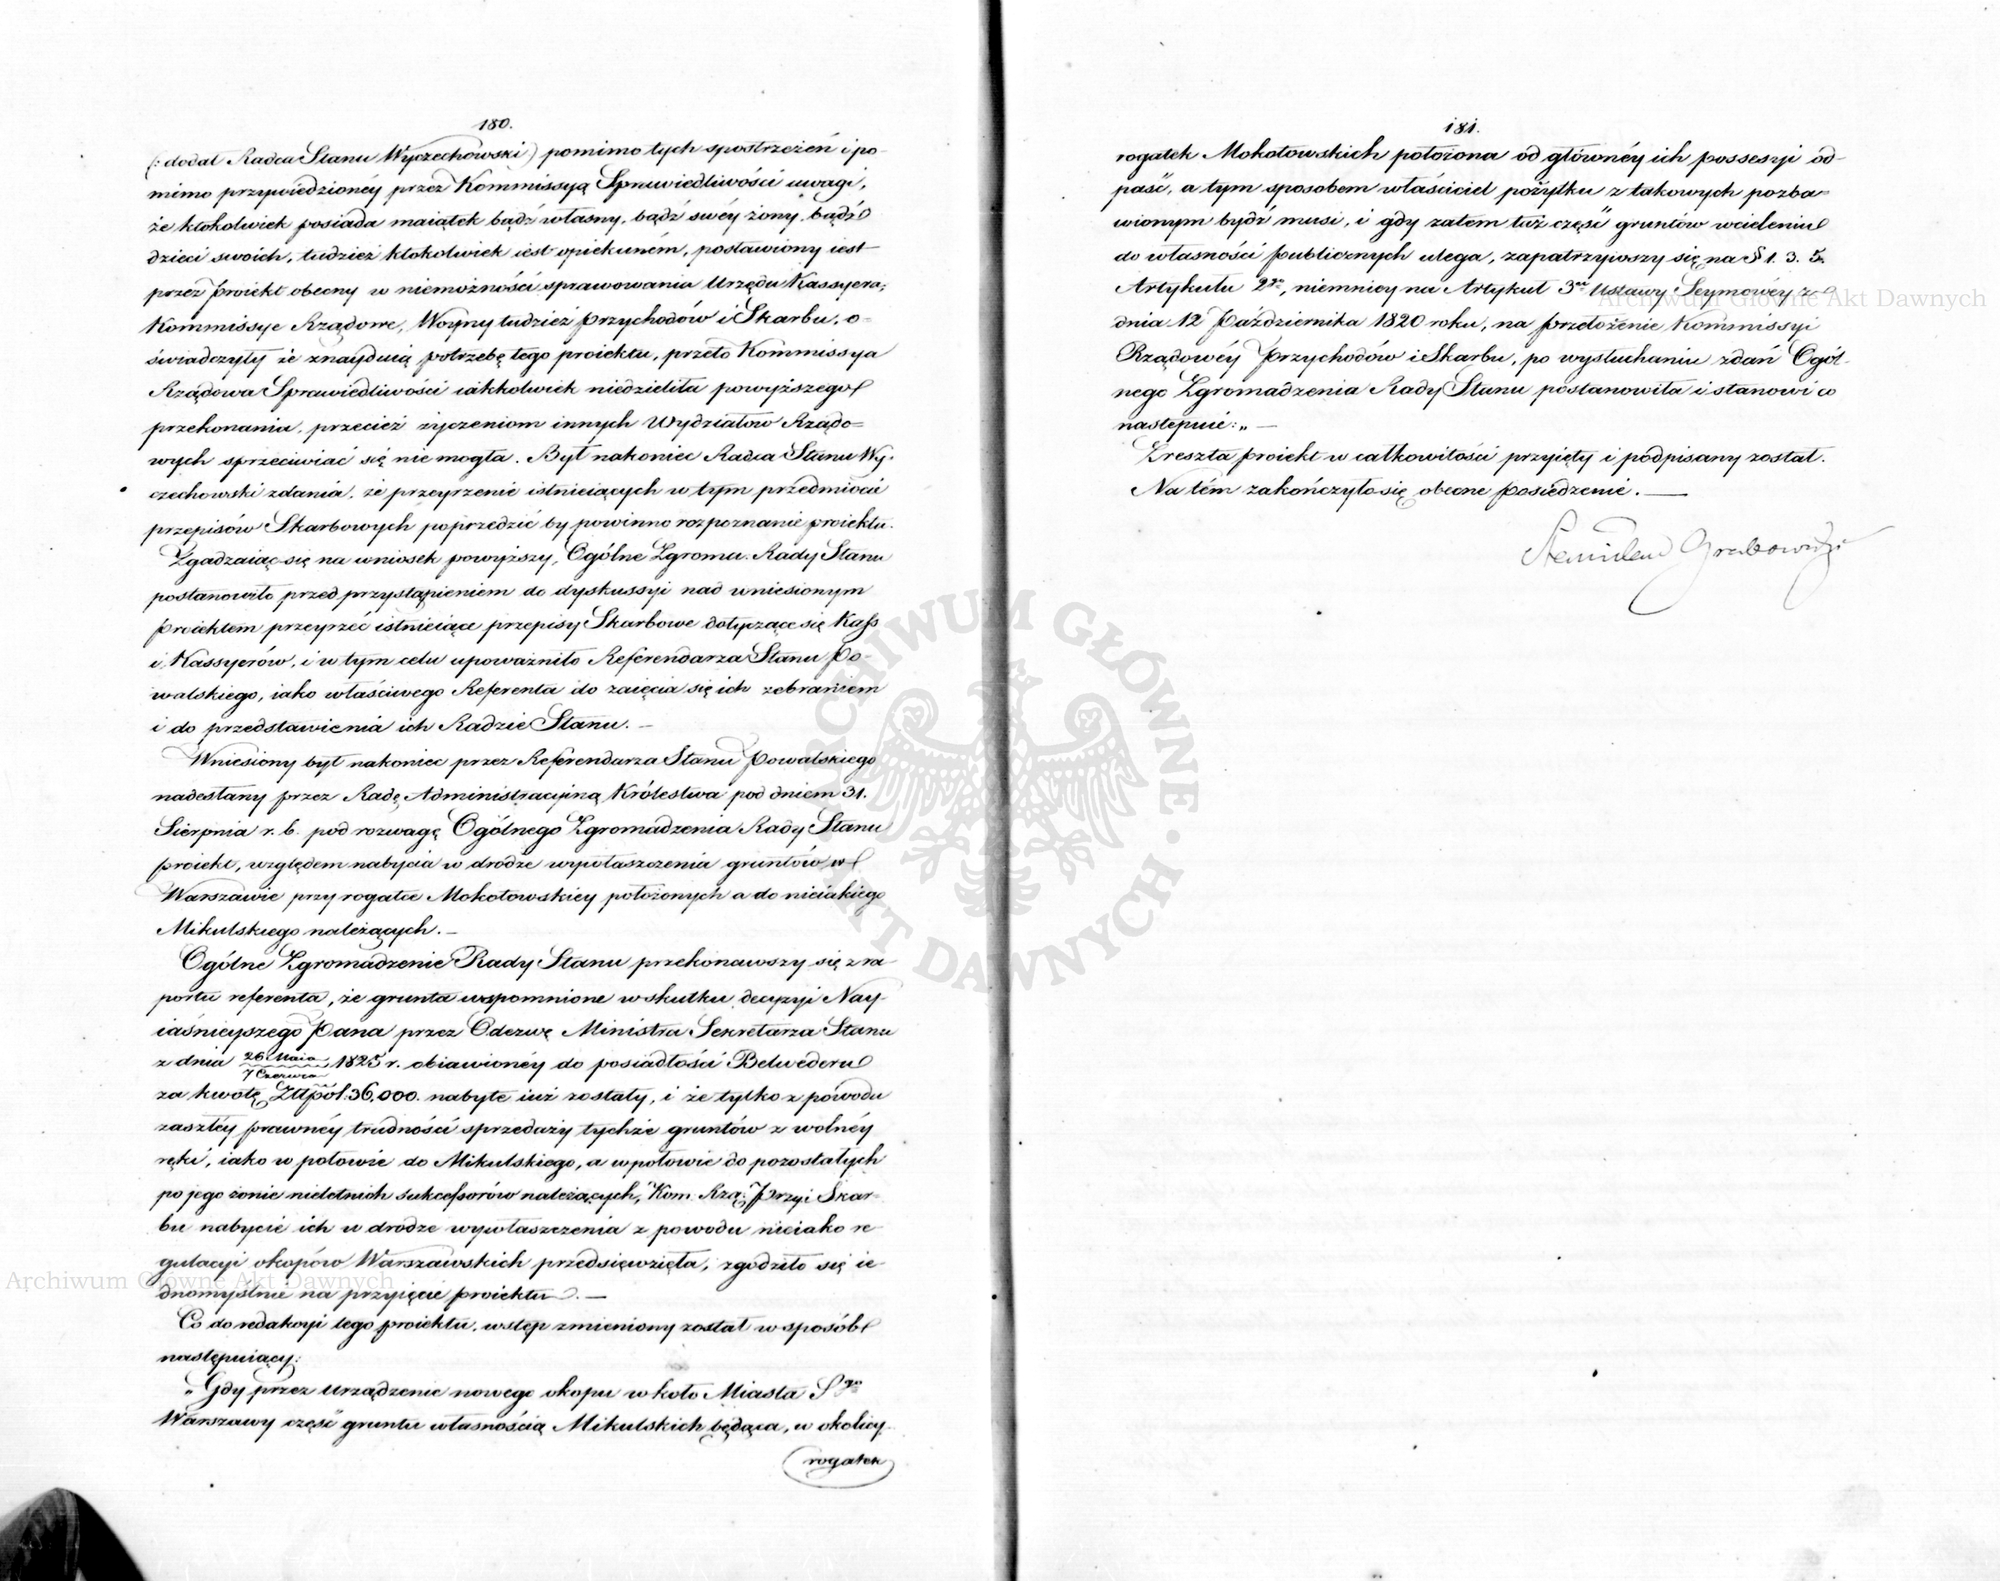 180.
(: dodał Radca Stanu Wyczechowski) pomimo tych spostrzeżeń i po-
mimo przywiedzionéy przez Kommissyą Sprawiedliwości uwagi,
że ktokolwiek posiada maiątek bądź własny, bądź swéy żony, bądź
dzieci swoich, tudzież ktokolwiek iest opiekuném, postawiony iest
przez proiekt obecny w niemożności sprawowania Urzędu Kassyera;
Kommissye Rządowe, Woyny tudzież Przychodów i Skarbu, o-
świadczyły że znayduią potrzebę tego proiektu, przeto Kommissya
Rządowa Sprawiedliwości iakkolwiek niedzieliła powyższego
przekonania, przecież życzeniom innych Wydziałów Rządo-
wych sprzeciwiać się nie mogła. Był nakoniec Radca Stanu Wy-
czechowski zdania, że przeyrzenie istnieiących w tym przedmiocie
przepisów Skarbowych poprzedzić by powinno rozpoznanie proiektu.
Zgadzaiąc się na wniosek powyższy, Ogólne Zgrom: Rady Stanu
postanowiło przed przystąpieniem do dyskussyi nad wniesionym
proiektem przeyrzeć istnieiące przepisy Skarbowe dotyczące się Kass
i Kassyerów, i w tym celu upoważniło Referendarza Stanu Po-
walskiego, iako właściwego Referenta do zaięcia się ich zebraniem
i do przedstawienia ich Radzie Stanu. —
Wniesiony był nakoniec przez Referendarza Stanu Powalskiego
nadesłany przez Radę Administracyiną Królestwa pod dniem 31.
Sierpnia r. b. pod rozwagę Ogólnego Zgromadzenia Rady Stanu
proiekt, względem nabycia w drodze wywłaszczenia gruntów w
Warszawie przy rogatce Mokotowskiey położonych a do nieiakiego
Mikulskiego należących. —
Ogólne Zgromadzenie Rady Stanu przekonawszy się z ra-
portu referenta, że grunta wspomnione w skutku decyzyi Nay-
iaśnieyszego Pana przez Odezwę Ministra Sekretarza Stanu
z dnia 26 Maia / 7 Czerwca 1825 r. obiawionéy do posiadłości Belwederu
za kwotę Złł pól. 36,000. nabyte iuż zostały, i że tylko z powodu
zaszłéy prawnéy trudności sprzedaży tychże gruntów z wolnéy
ręki, iako w połowie do Mikulskiego, a w połowie do pozostałych
po jego żonie nieletnich sukcessorów należących, Kom: Rzą: Przy: i Skar-
bu nabycie ich w drodze wywłaszczenia z powodu nieiako re-
gulacyi okopów Warszawskich przedsięwzięła, zgodziło się ie-
dnomyślnie na przyięcie proiektu. —
Co do redakcyi tego proiektu, wstęp zmieniony został w sposób
następuiący:
„Gdy przez urządzenie nowego okopu w koło Miasta S<sup>go</sup>
Warszawy część gruntu własnością Mikulskich będąca, w okolicy
rogatek
181.
rogatek Mokotowskich położona od głównéy ich possessyi od-
paść, a tym sposobem właściciel pożytku z takowych pozba-
wionym bydź musi, i gdy zatem taż część gruntów wcieleniu
do własności publicznych ulega, zapatrzywszy się na § 1. 3. 5.
Artykułu 2<sup>go</sup>, niemniey na Artykuł 3<sup>ci</sup> Ustawy Seymowey z
dnia 12 Października 1820 roku, na przełożenie Kommissyi
Rządowéy Przychodów i Skarbu, po wysłuchaniu zdań Ogól-
nego Zgromadzenia Rady Stanu postanowiła i stanowi co
następuie:„ —
Zreszta proiekt w całkowitości przyięty i podpisany został.
Na tém zakończyło się obecne posiedzenie. —
Stanisław Grabowski
ARCHIWUM GŁÓWNE AKT DAWNYCH
Archiwum Główne Akt Dawnych
Archiwum Główne Akt Dawnych